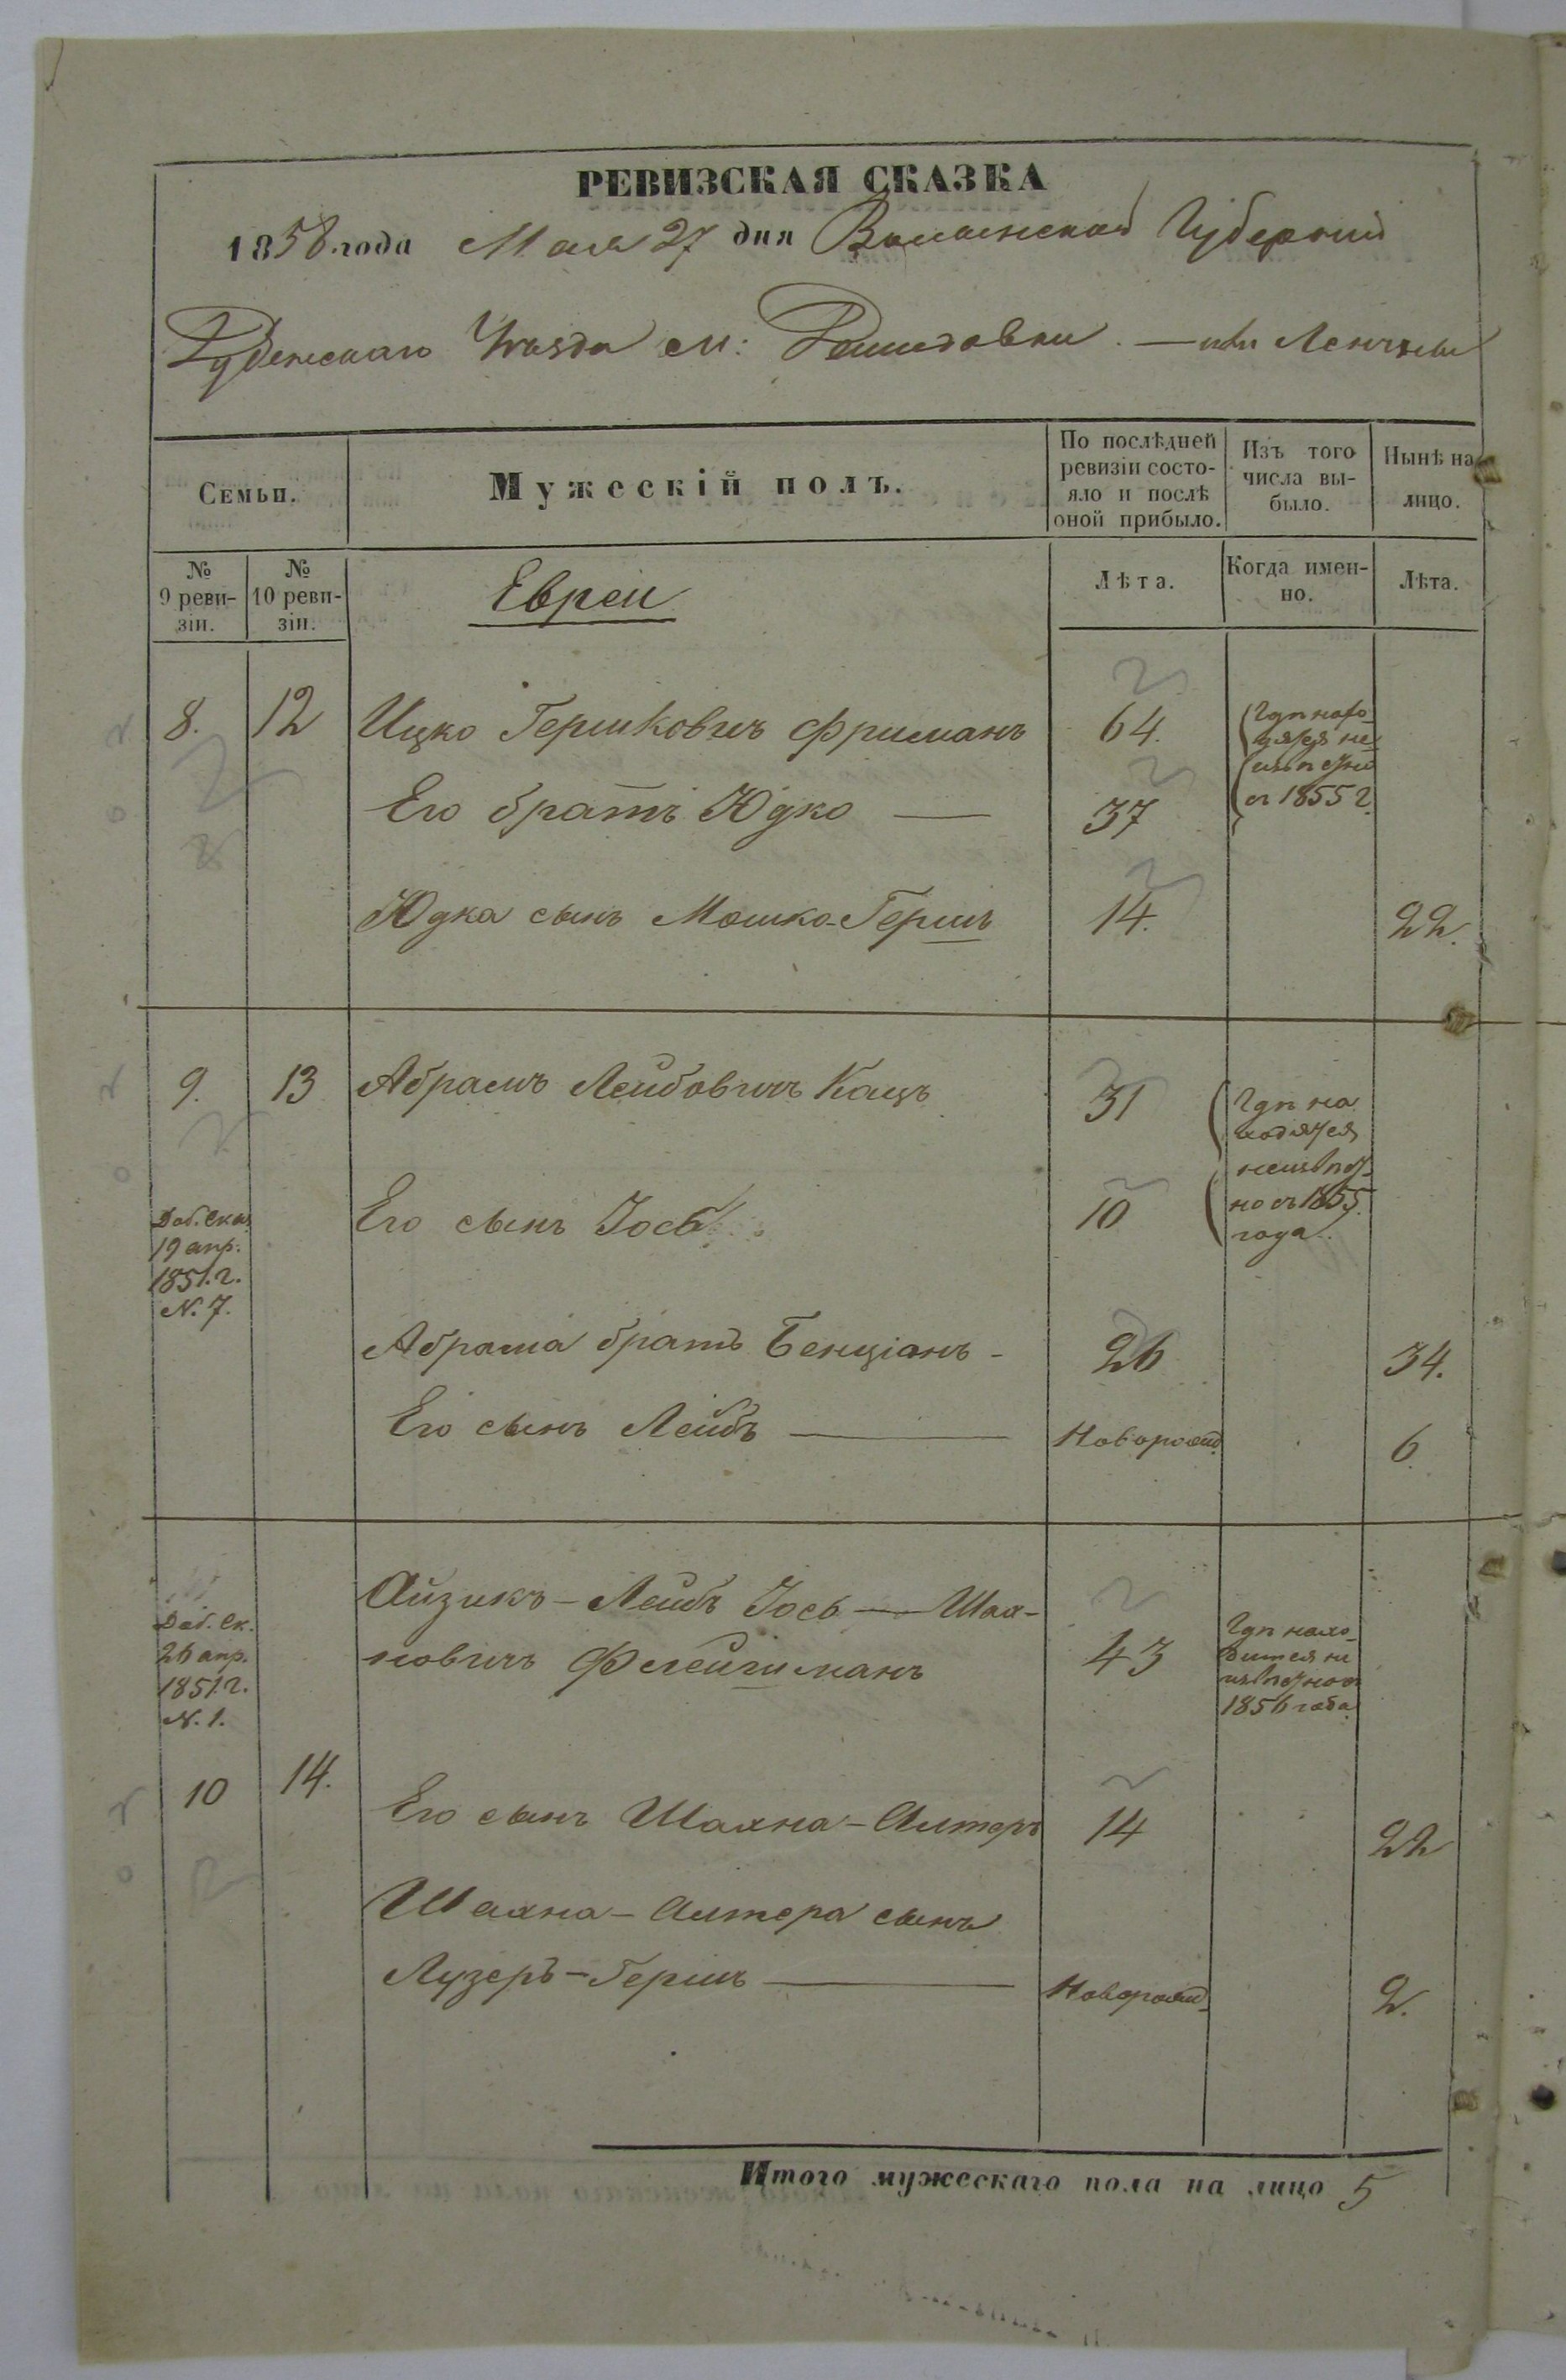 РЕВИЗСКАЯ СКАЗКА
1858 года Мая 27 дня Волынской Губернии
Дубенскаго Уѣзда м: Демидовки. — или Ленчны
Семьи.
Мужескій полъ.
По послѣдней ревизіи состояло и послѣ оной прибыло.
Изъ того числа выбыло.
Нынѣ на лицо.
№ 9 ревизіи.
№ 10 ревизіи.
Евреи
Лѣта.
Когда именно.
Лѣта.
8. 12 Ицко Гершковичъ Фриманъ 64.
Гдѣ нахо-
дятся не-
извѣстно
съ 1855 г.
Его братъ Юдко — 37
Юдка сынъ Мошко-Гершъ 14. 22.
9. 13 Абрамъ Лейбовичъ Кацъ 31
Гдѣ на
ходятся
неизвѣст-
но съ 1855
года.
Его сынъ Іось 10
Доб. ска.
19 апр.
1851. г.
N. 7.
Абрама братъ Бенціанъ - 26 34.
Его сынъ Лейбъ — Новорожд. 6.
Доб. Ск.
26 апр.
1851. г.
N. 1.
Айзикъ-Лейбъ Іось — Шая-
новичъ 43
Гдѣ нахо-
дится не
извѣстно съ
1856 года
10 14.
Его сынъ Шаяна-Алтеръ 14 22
Шаяна-Алтера сынъ
Лузеръ-Гершъ — Новорожд. 2.
Итого мужескаго пола на лицо 5